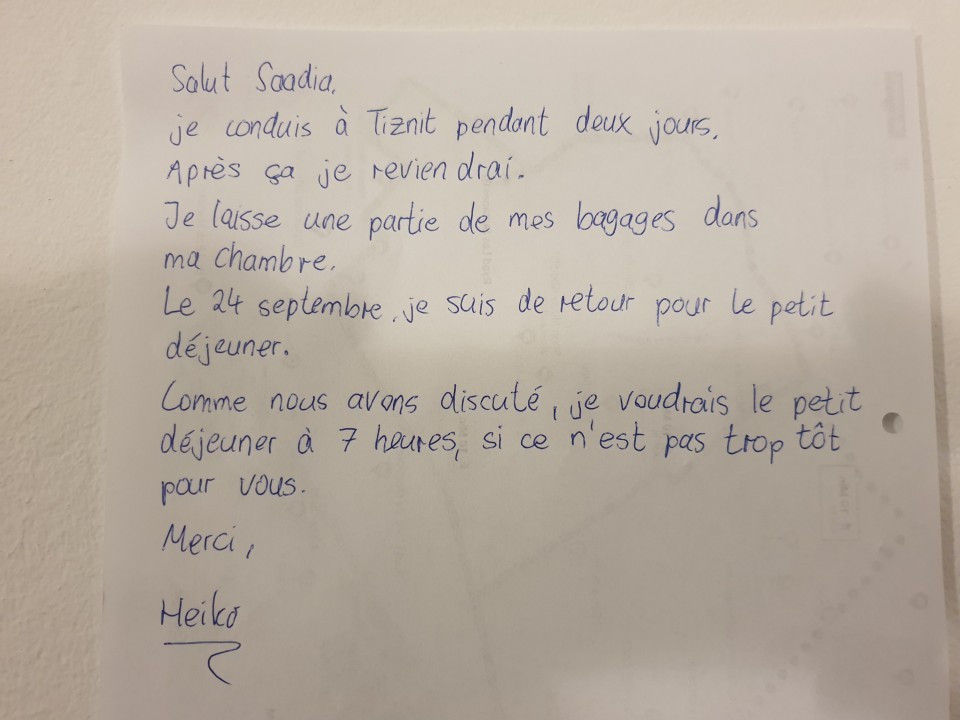 Salut Saadia,
je conduis à Tiznit pendant deux jours.
Après ça je reviendrai.
Je laisse une partie de mes bagages dans
ma chambre.
Le 24 septembre, je suis de retour pour le petit
déjeuner.
Comme nous avons discuté, je voudrais le petit
déjeuner à 7 heures, si ce n'est pas trop tôt
pour vous.
Merci,
Heiko